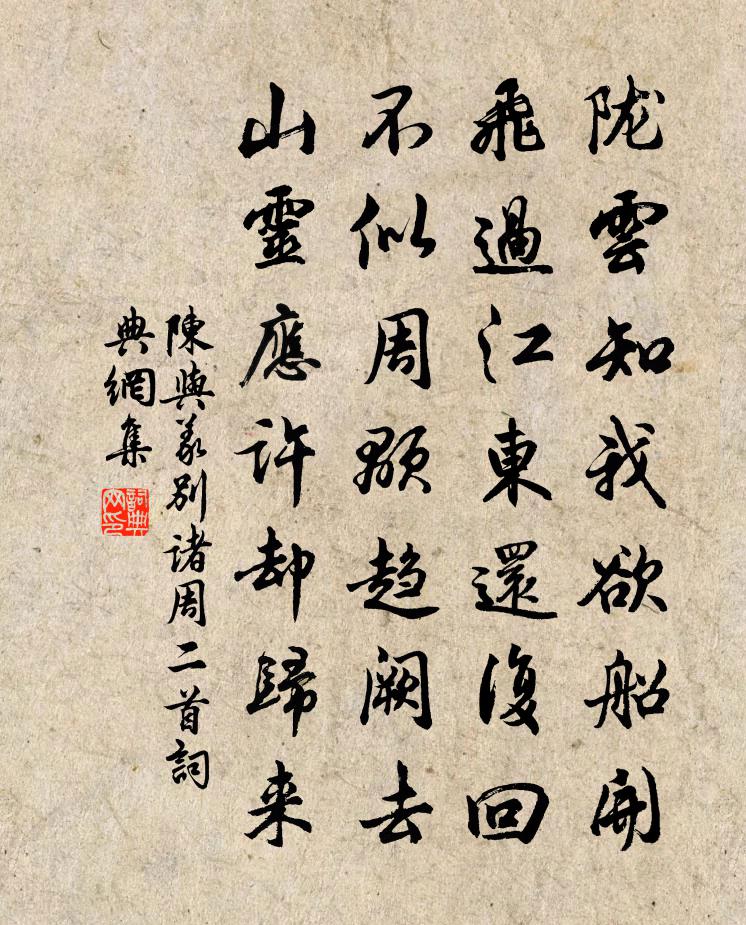 陇雲知我欲船開
飛過江東還復回
不似周顒趋阙去
山靈應許却歸来
陳與義别诸周二首詞
典網集
詞典
网印